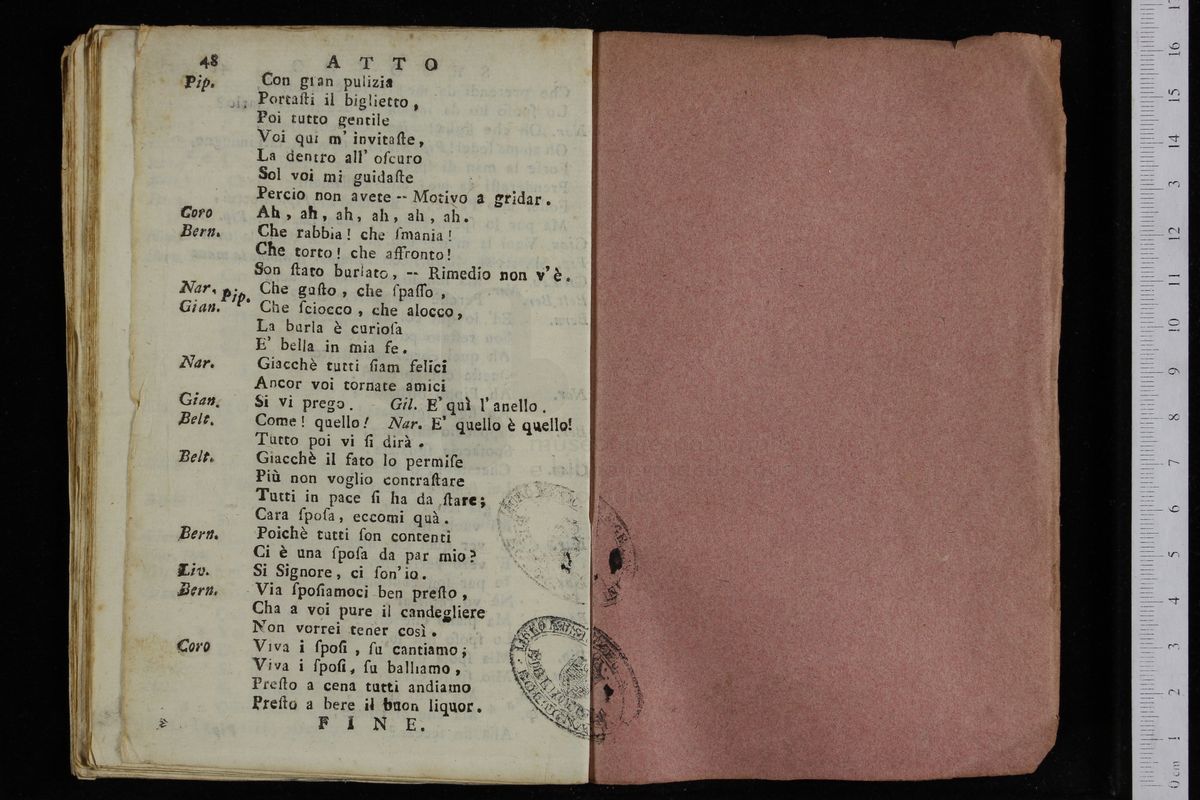 48 ATTO
Pip. Con gran pulizia
Portaſti il biglietto,
Poi tutto gentile
Voi qui m' invitaſte,
La dentro all' oſcuro
Sol voi mi guidaſte
Percio non avete -- Motivo a gridar.
Coro Ah, ah, ah, ah, ah, ah.
Bern. Che rabbia! che ſmania!
Che torto! che affronto!
Son ſtato burlato, -- Rimedio non v'è.
Nar. Pip. Che guſto, che ſpaſſo,
Gian. Che ſciocco, che alocco,
La burla è curioſa
E' bella in mia fe.
Nar. Giacchè tutti ſiam felici
Ancor voi tornate amici
Gian. Si vi prego. Gil. E' quì l'anello.
Belt. Come! quello! Nar. E' quello è quello!
Tutto poi vi ſi dirà.
Belt. Giacchè il fato lo permiſe
Più non voglio contraſtare
Tutti in pace ſi ha da ſtare;
Cara ſpoſa, eccomi quà.
Bern. Poichè tutti ſon contenti
Ci è una ſpoſa da par mio?
Liv. Si Signore, ci ſon'io.
Bern. Via ſpoſiamoci ben preſto,
Cha a voi pure il candegliere
Non vorrei tener così.
Coro Viva i ſpoſi, ſu cantiamo;
Viva i ſpoſi, ſu balliamo,
Preſto a cena tutti andiamo
Preſto a bere il buon liquor.
FINE.
0 cm 1 2 3 4 5 6 7 8 9 10 11 12 13 14 15 16 17